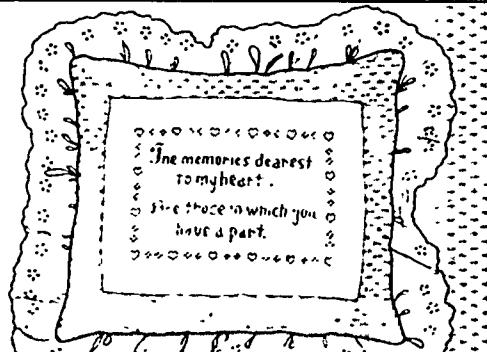 The memories dearest
to my heart.
Are those in which you
have a part.